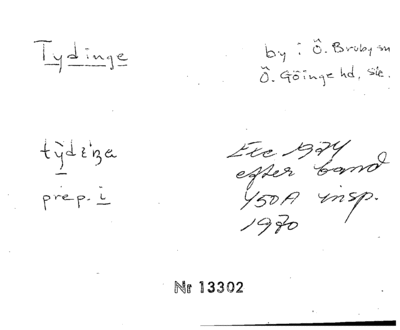 Tydinge
by i Ö. Broby sn
Ö. Göinge hd, Sk.
tỳdɛŋa
prep. i
Exc 1974
efter band
450A insp.
1970
Nr 13302